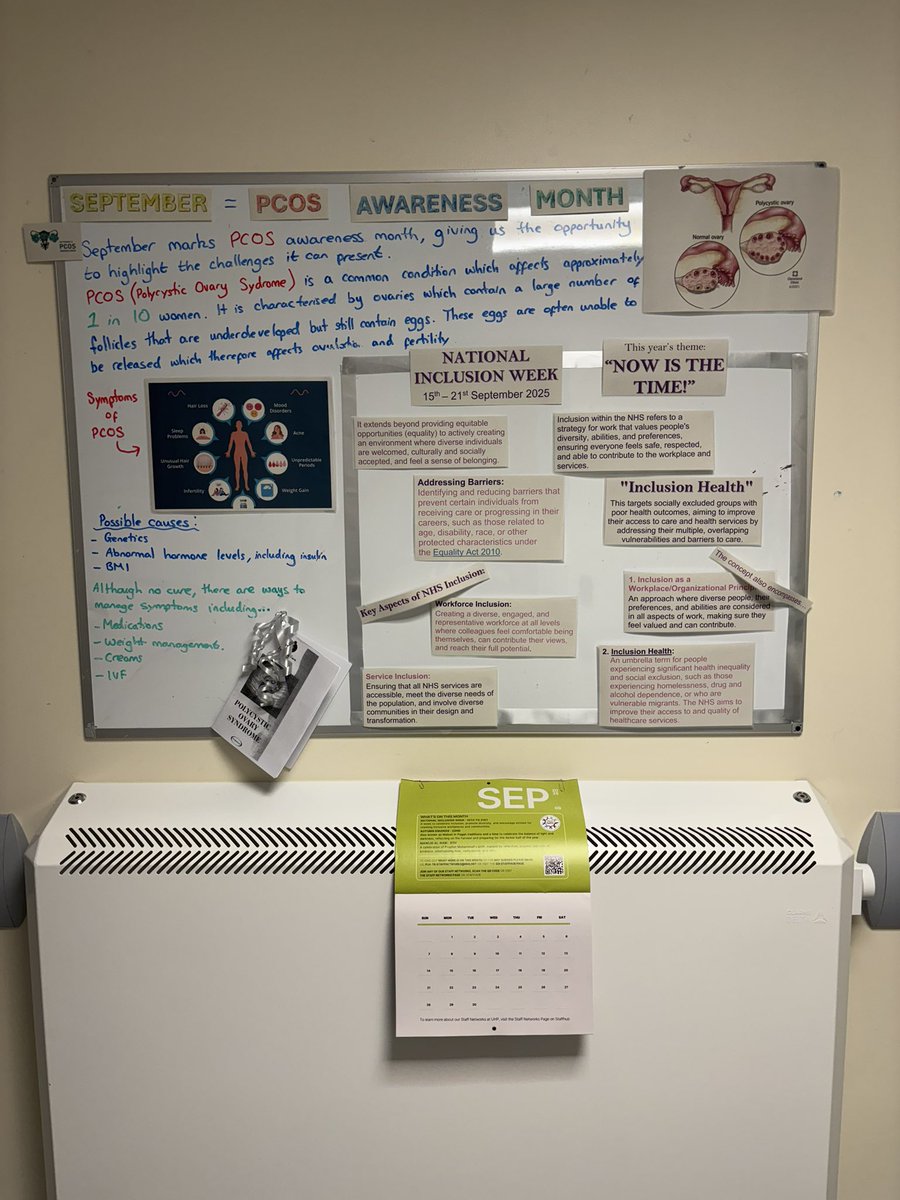 SEPTEMBER = PCOS AWARENESS MONTH
PCOS
September marks PCOS awareness month, giving us the opportunity
to highlight the challenges it can present.
PCOS (Polycystic Ovary Sydrome) is a common condition which affects approximately
1 in 10 women. It is characterised by ovaries which contain a large number of
follicles that are underdeveloped but still contain eggs. These eggs are often unable to
be released which therefore affects ovulation and fertility
Polycystic ovary
Normal ovary
Symptoms
of
PCOS
Hair Loss
Mood
Disorders
Sleep
Problems
Acne
Unusual Hair
Growth
Unpredictable
Periods
Infertility
Weight Gain
Possible causes:
- Genetics
- Abnormal hormone levels, including insulin
- BMI
Although no cure, there are ways to
manage symptoms including...
- Medications
- Weight management
- Creams
- IVF
POLYCYSTIC
OVARY
SYNDROME
NATIONAL
INCLUSION WEEK
15th – 21st September 2025
This year's theme:
“NOW IS THE
TIME!”
It extends beyond providing equitable
opportunities (equality) to actively creating
an environment where diverse individuals
are welcomed, culturally and socially
accepted, and feel a sense of belonging.
Inclusion within the NHS refers to a
strategy for work that values people's
diversity, abilities, and preferences,
ensuring everyone feels safe, respected,
and able to contribute to the workplace and
services.
Addressing Barriers:
Identifying and reducing barriers that
prevent certain individuals from
receiving care or progressing in their
careers, such as those related to
age, disability, race, or other
protected characteristics under
the Equality Act 2010.
"Inclusion Health"
This targets socially excluded groups with
poor health outcomes, aiming to improve
their access to care and health services by
addressing their multiple, overlapping
vulnerabilities and barriers to care.
The concept also encompasses...
Key Aspects of NHS Inclusion:
1. Inclusion as a
Workplace/Organizational Principle
An approach where diverse people, their
preferences, and abilities are considered
in all aspects of work, making sure they
feel valued and can contribute.
Workforce Inclusion:
Creating a diverse, engaged, and
representative workforce at all levels
where colleagues feel comfortable being
themselves, can contribute their views,
and reach their full potential.
2. Inclusion Health:
An umbrella term for people
experiencing significant health inequality
and social exclusion, such as those
experiencing homelessness, drug and
alcohol dependence, or who are
vulnerable migrants. The NHS aims to
improve their access to and quality of
healthcare services.
Service Inclusion:
Ensuring that all NHS services are
accessible, meet the diverse needs of
the population, and involve diverse
communities in their design and
transformation.
SEP
WHAT'S ON THIS MONTH
JOIN ANY OF OUR STAFF NETWORKS, SCAN THE QR CODE OR VISIT
THE STAFF NETWORKS PAGE ON STAFFHUB
SUN MON TUE WED THU FRI SAT
1 2 3 4 5 6
7 8 9 10 11 12 13
14 15 16 17 18 19 20
21 22 23 24 25 26 27
28 29 30
To learn more about our Staff Networks at UHP, visit the Staff Networks Page on Staffhub